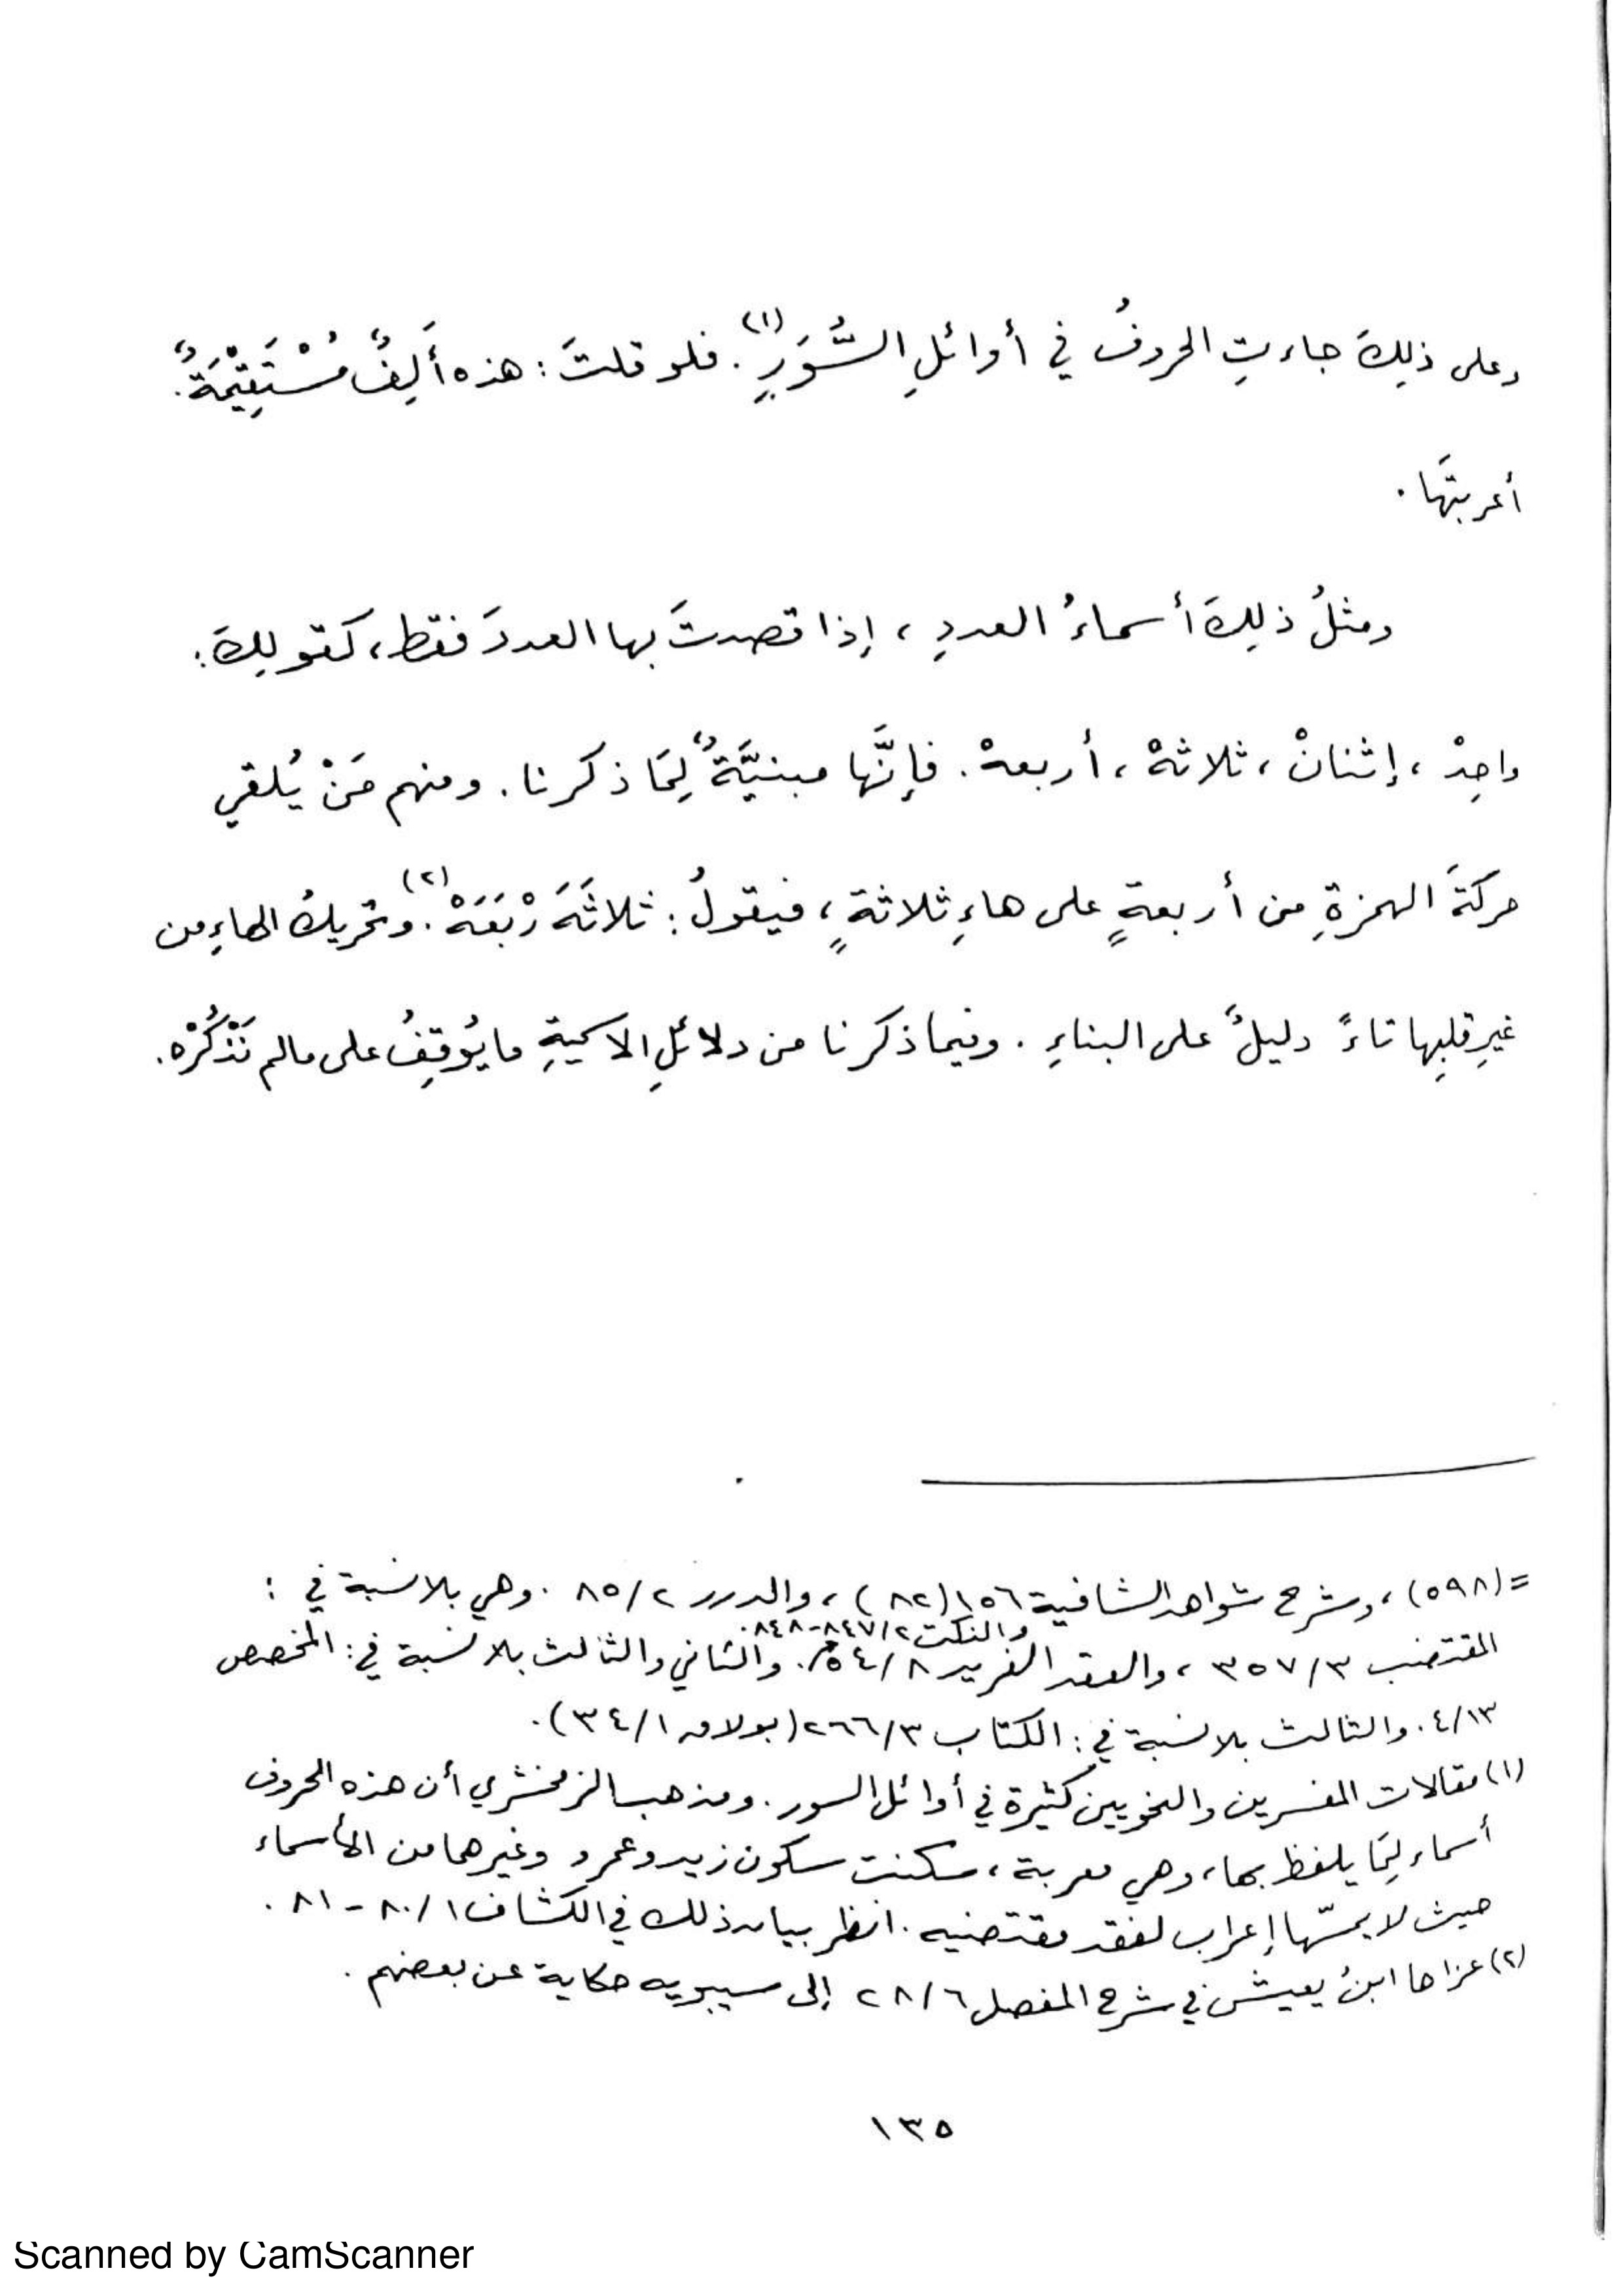 وعلى ذلِكَ جاءتِ الحروفُ في أوائلِ السُّوَرِ(١). فلو قلتَ: هذه أَلِفٌ مُسْتَقِيْمَةٌ.
أعربتَها.
ومثلُ ذلِكَ أسماءُ العددِ، إذا قصدتَ بها العددَ فقط، كقولِكَ:
واحِدْ، إثنانْ، ثلاثهْ، أربعهْ. فإنَّها مبنيَّةٌ لِمَا ذكرنا. ومنهم مَنْ يُلقي
حركةَ الهمزةِ من أربعةٍ على هاءِ ثلاثةٍ، فيقولُ: ثلاثَهَ رْبَعَهْ(٢). وتحريكُ الهاءِ من
غيرِ قلبِها تاءً دليلٌ على البناءِ. وفيما ذكرنا من دلائلِ الاسميةِ ما يُوقِفُ على مالم نَذْكُرْه.
= (٥٩٨)، وشرح شواهد الشافية ١٥٦ (٨٢)، والدرر ٨٥/٢. وهي بلا نسبة في:
والنكت ٨٤٧/٢-٨٤٨.
المقتضب ٣٥٧/٣، والعقد الفريد ٥٤/٨. والثاني والثالث بلا نسبة في: المخصص
٤/١٣. والثالث بلا نسبة في: الكتاب ٢٦٦/٣ (بولاق ٣٤/١).
(١) مقالات المفسرين والنحويين كثيرة في أوائل السور. ومذهب الزمخشري أن هذه الحروف
أسماء لِمَا يلفظ بها، وهي معربة، سكنت سكون زيد وعمرو وغيرهما من الأسماء
حيث لا يمسّها إعراب لفقد مقتضيه. انظر بيان ذلك في الكشاف ٨٠/١ - ٨١.
(٢) عزاها ابنُ يعيش في شرح المفصل ٢٨/٦ إلى سيبويه حكاية عن بعضهم.
١٣٥
Scanned by CamScanner